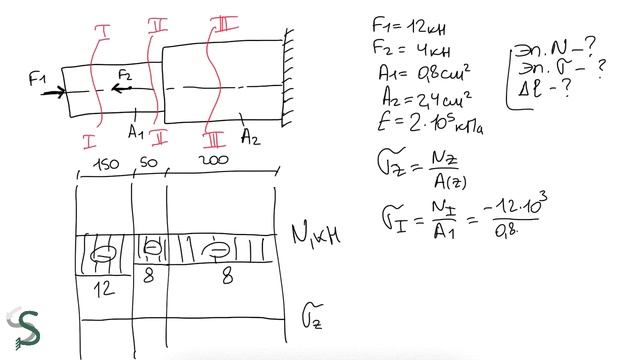 I II III
F1 F2
I A1 II III A2
150 50 200
N, кН
12 8 8
σz
F1 = 12 кН
F2 = 4 кН
A1 = 0,8 см²
A2 = 2,4 см²
E = 2·10⁵ кПа
Эп. N – ?
Эп. σ – ?
Δℓ – ?
σz = Nz / A(z)
σI = NI / A1 = -12·10³ / 0,8·
S